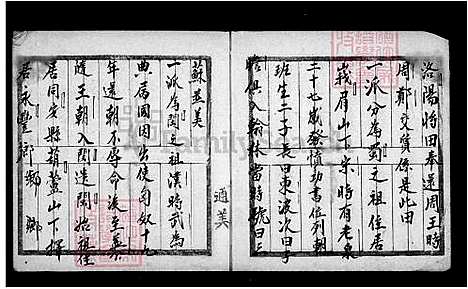 洛陽治田奉還周王時
周鄭交質係是此由
一派分為蜀之祖住居
峩眉山下宋時有老泉
二十七歲發憤功書位列朝
班生二子長曰東波次曰子
瞻俱入翰林當時號曰三
蘇並美
一派為閩之祖漢時武為
典属國因出使匈奴十九
年還朝不辱命後至
隨王朝入閩遂開始祖住
居同安縣葫蘆山下擇
居永豐鄉
通美